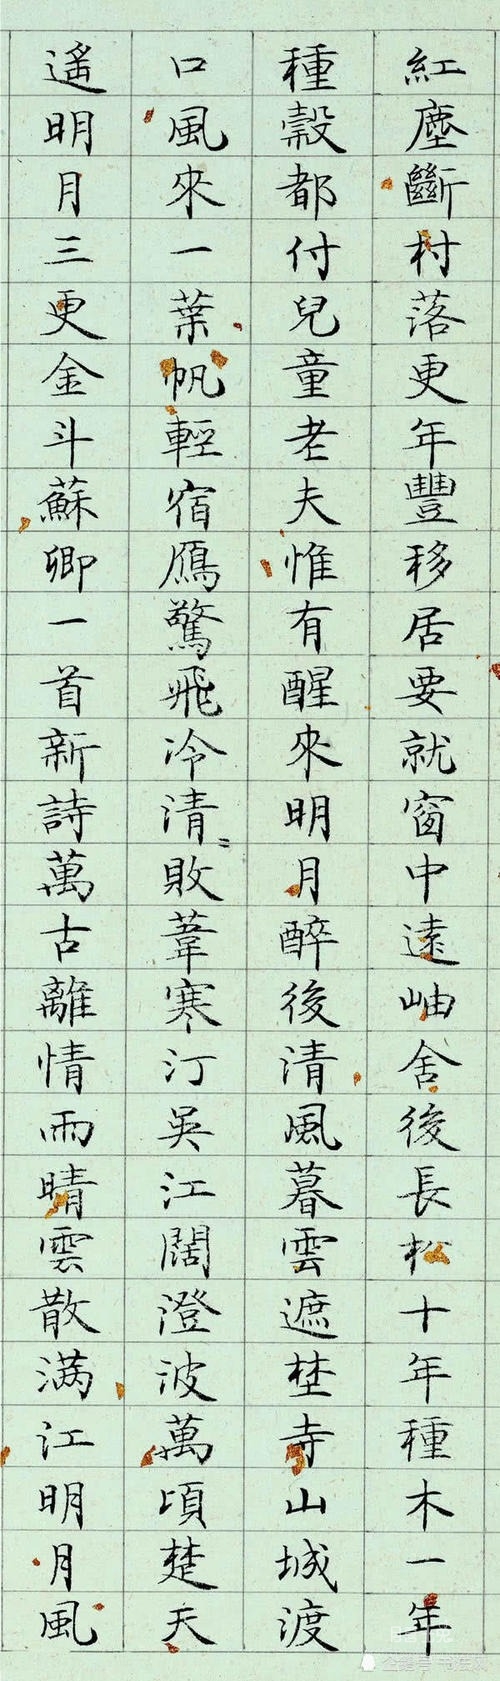 紅塵斷村落更年豐移居要就窗中遠岫舍後長松十年種木一年
種穀都付兒童老夫惟有醒來明月醉後清風暮雲遮埜寺山城渡
口風來一葉帆輕宿鴈驚飛冷清敗葦寒汀吳江闊澄波萬頃楚天
遙明月三更金斗蘇卿一首新詩萬古離情雨晴雲散满江明月風